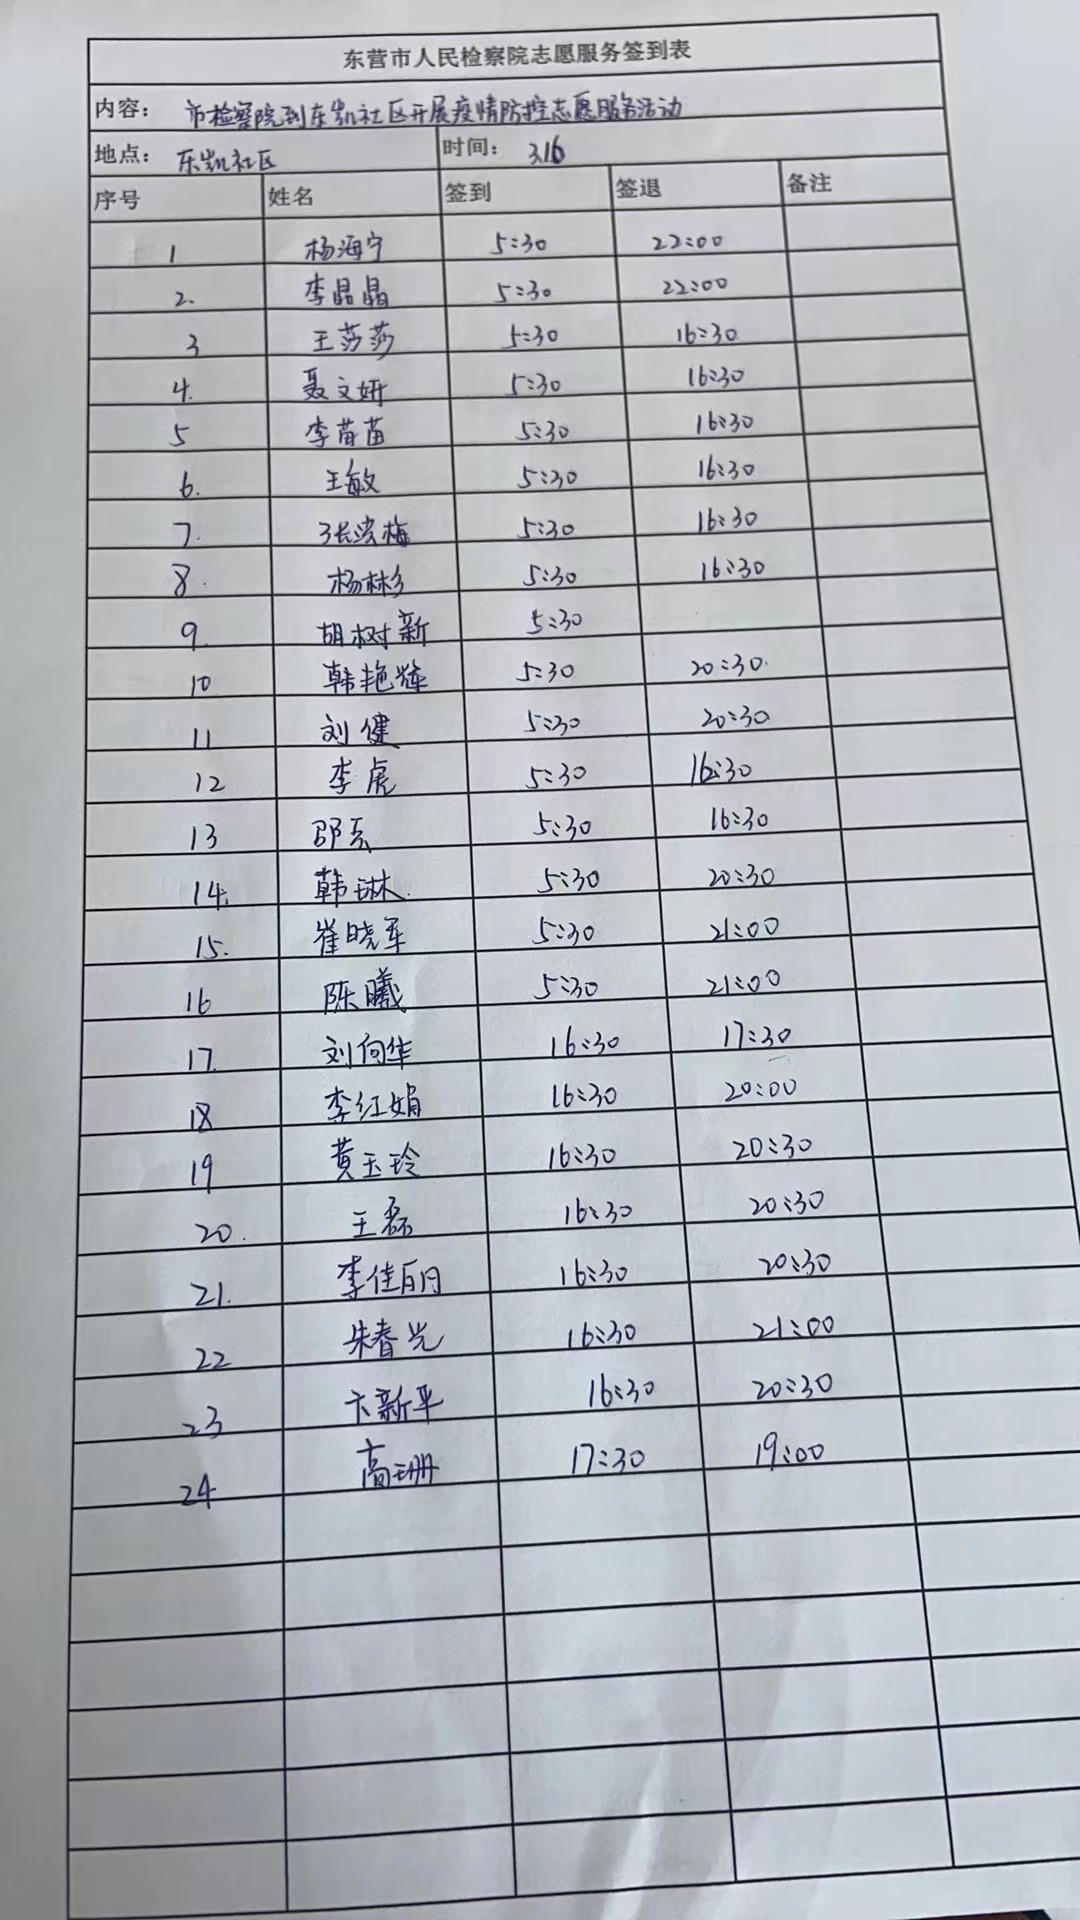 东营市人民检察院志愿服务签到表
内容： 市检察院到东凯社区开展疫情防控志愿服务活动
地点： 东凯社区 时间： 3.16
序号 姓名 签到 签退 备注
1 杨海宁 5:30 22:00
2. 李晶晶 5:30 22:00
3 王莎莎 5:30 16:30
4. 聂文妍 5:30 16:30
5 李苗苗 5:30 16:30
6. 王敏 5:30 16:30
7. 张洪梅 5:30 16:30
8. 杨彬彬 5:30 16:30
9. 胡树新 5:30
10 韩艳辉 5:30 20:30.
11 刘健 5:30 20:30
12 李虎 5:30 16:30
13 5:30 16:30
14. 韩琳. 5:30 20:30
15. 崔晓军 5:30 21:00
16 陈曦 5:30 21:00
17. 刘向华 16:30 17:30
18 李红娟 16:30 20:00
19 黄玉玲 16:30 20:30
20. 王磊 16:30 20:30
21. 李佳 16:30 20:30
22 朱春光 16:30 21:00
23 卞新平 16:30 20:30
24 高珊 17:30 19:00